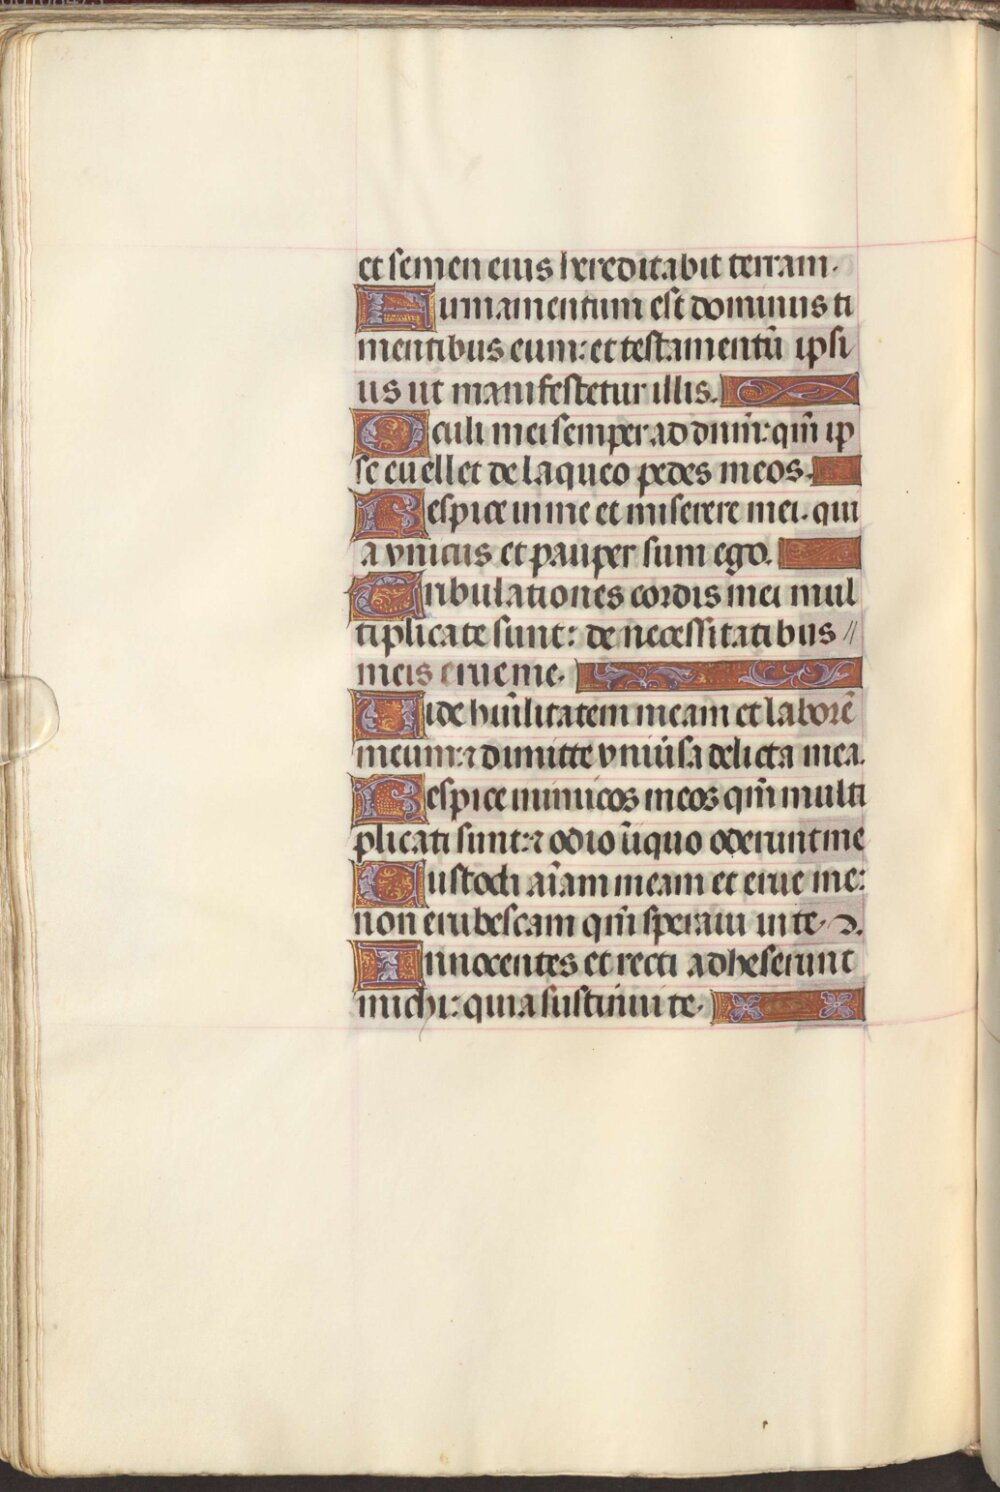 et semen eius hereditabit terram.
Firmamentum est dominus ti
mentibus eum: et testamentū ipsi
us ut manifestetur illis.
Oculi mei semper ad dnm̄: qm̄ ip
se euellet de laqueo pedes meos.
Respice in me et miserere mei. qui
a vnicus et pauper sum ego.
Tribulationes cordis mei mul
tiplicate sunt: de necessitatibus //
meis erue me.
Vide hūilitatem meam et laborē
meum: ⁊ dimitte vniūsa delicta mea.
Respice inimicos meos qm̄ multi
plicati sunt: ⁊ odio īiquo oderunt me
Custodi aīam meam et erue me:
non erubescam qm̄ speraui in te.
Innocentes et recti adheserunt
michi: quia sustinui te.